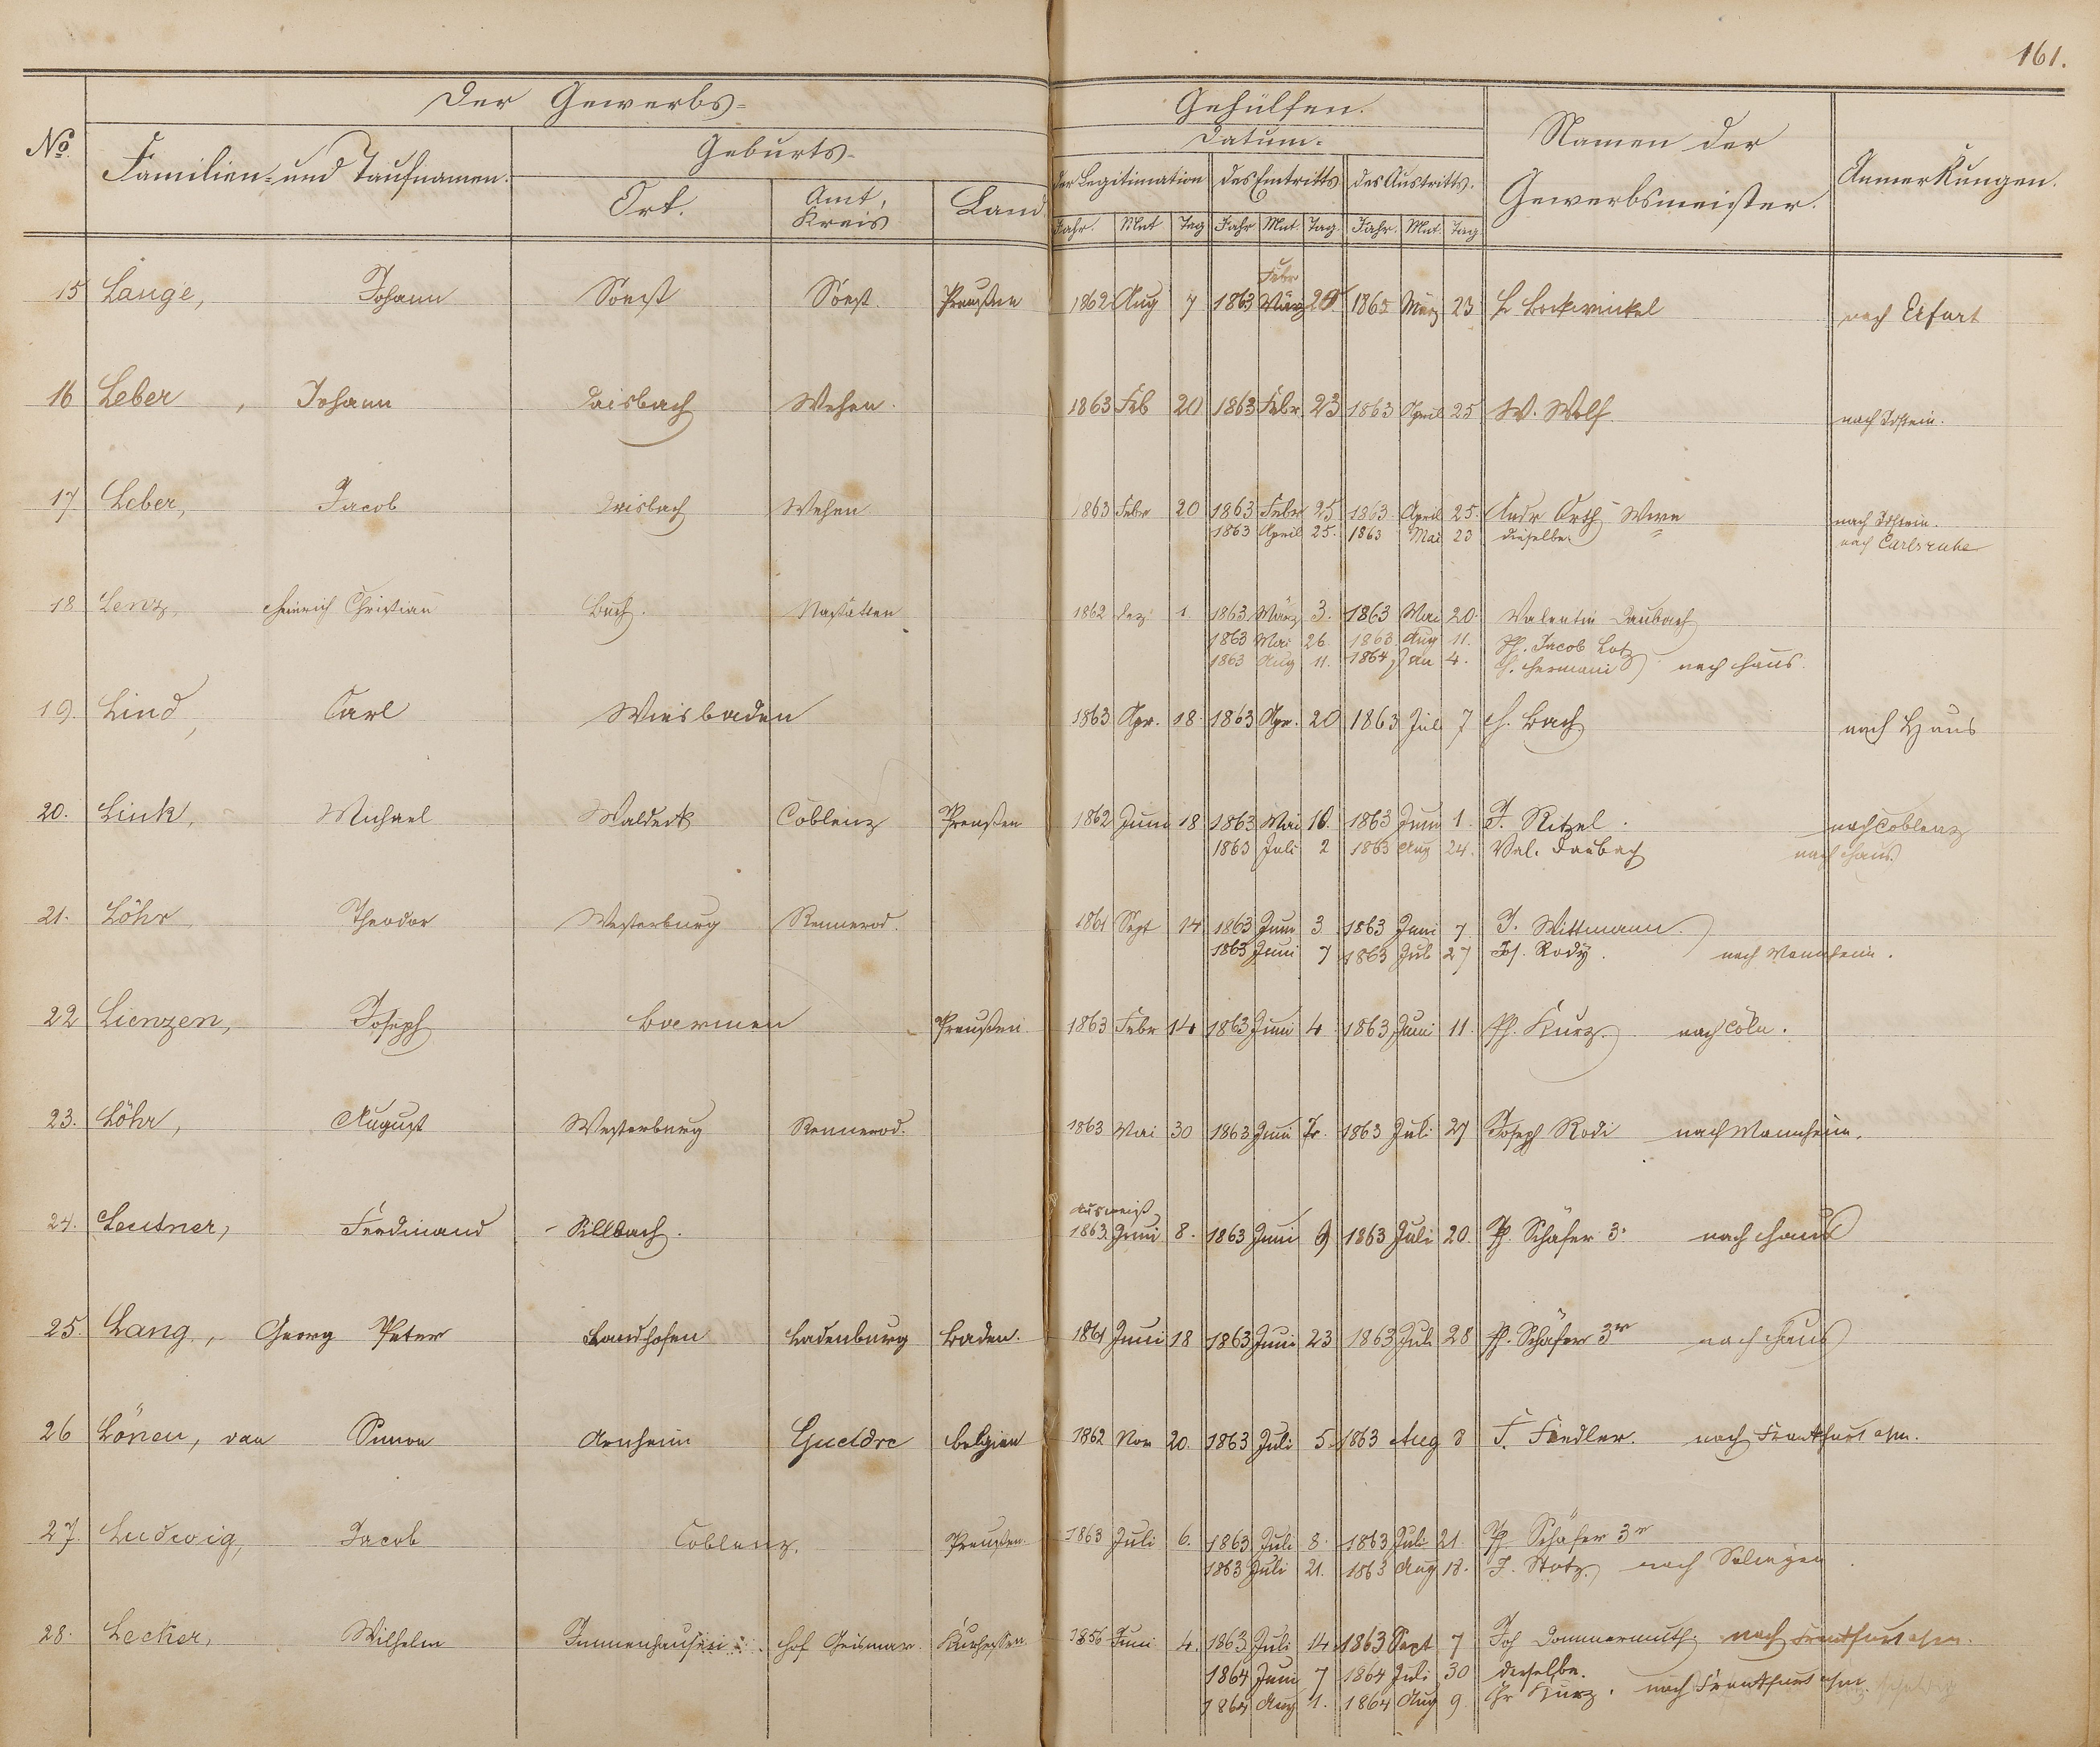 161.
Der Gewerbs-
Gehülfen.
No.
Familien- und Taufnamen.
Geburts-
Ort.
Amt, Kreis
Land
Datum.
der Legitimation des Eintritts des Austritts.
Jahr. Mnt Tag Jahr Mnt. Tag. Jahr. Mnt. Tag
Namen der
Gewerbsmeister.
Anmerkungen.
Febr
15 Lange, Johann Soest Soest. Preußen 1862 Aug 7 1863 März 1863 März 23 Bockwinkel nach Erfurt
16 Leber, Johann Daisbach Wehen. 1863 Feb 20 1863 Febr. 23 1863 April 25 W. Wolf nach Idstein.
17. Leber, Jacob Daisbach Wehen 1863 Febr 20 1863 Febr 25 1863 April 25. Andr Orth Wwe nach Idstein.
1863 April 25. 1863 Mai 23 dieselbe nach Carlsruhe
18 Lenz, Heinrich Christian Buch. Nastätten 1862 Dez 1 1863 März 3. 1863 Mai 20. Valentin Daubach
1863 Mai 26 1863 Aug 11. Ph. Jacob Lotz
1863 Aug 11. 1864 Jan 4. H. Hermani nach Haus.
19. Lind, Carl Wiesbaden 1863 Apr. 18. 1863 Apr. 20 1863 Jul 7 H. Bach nach Haus
20. Link, Michael Waldeck Coblenz Preußen 1862 Juni 18 1863 Mai 10. 1863 Juni 1. J. Ritzel. nach Coblenz
1863 Juli 2 1863 Aug 24. Val. Daubach nach Haus
21. Löhr Theodor Westerburg Rennerod. 1861 Sept 14 1863 Juni 3 1863 Juni 7 J. Wittmann.
1863 Juni 7 1863 Juli 27 Jos. Rody. nach Mannheim.
22 Lienzen, Joseph Barmen Preußen 1863 Febr 14 1863 Juni 4. 1863 Juni 11. Ph. Kurz. nach Cöln.
23. Löhr, August Westerburg Rennerod. 1863 Mai 30 1863 Juni 1863 Juli 27 Joseph Rodi nach Mannheim.
Ausweis
24. Leutner, Ferdinand Sillbach. 1863 Juni 8. 1863 Juni 9 1863 Juli 20. Ph. Schäfer 3r nach Haus
25. Lang, Georg Peter Sandhofen Ladenburg Baden. 1861 Juni 18 1863 Juni 23 1863 Juli 28 Ph. Schäfer 3r nach Haus
26 Lönen, van Simon Arnheim Gueldre Belgien 1862 Nov 20. 1863 Juli 5. 1863 Aug 8 F. Fiedler. nach Frankfurt a/m.
27. Ludwig, Jacob Coblenz. Preußen. 1863 Juli 6. 1863 Juli 8. 1863 Juli 21. Ph. Schäfer 3r
1863 Juli 21. 1863 Aug 18. J. Stotz. nach Solingen.
28. Lecker, Wilhelm Immenhausen Hof Geismar. Kurhessen. 1856 Juni 4. 1863 Juli 14. 1863 Sept 7 Joh Dommermuth. nach Frankfurt a/m.
1864 Juni 7 1864 Juli 30 derselbe.
1864 Aug 1. 1864 Aug 9. Chr Kurz. nach Frankfurt a/m.